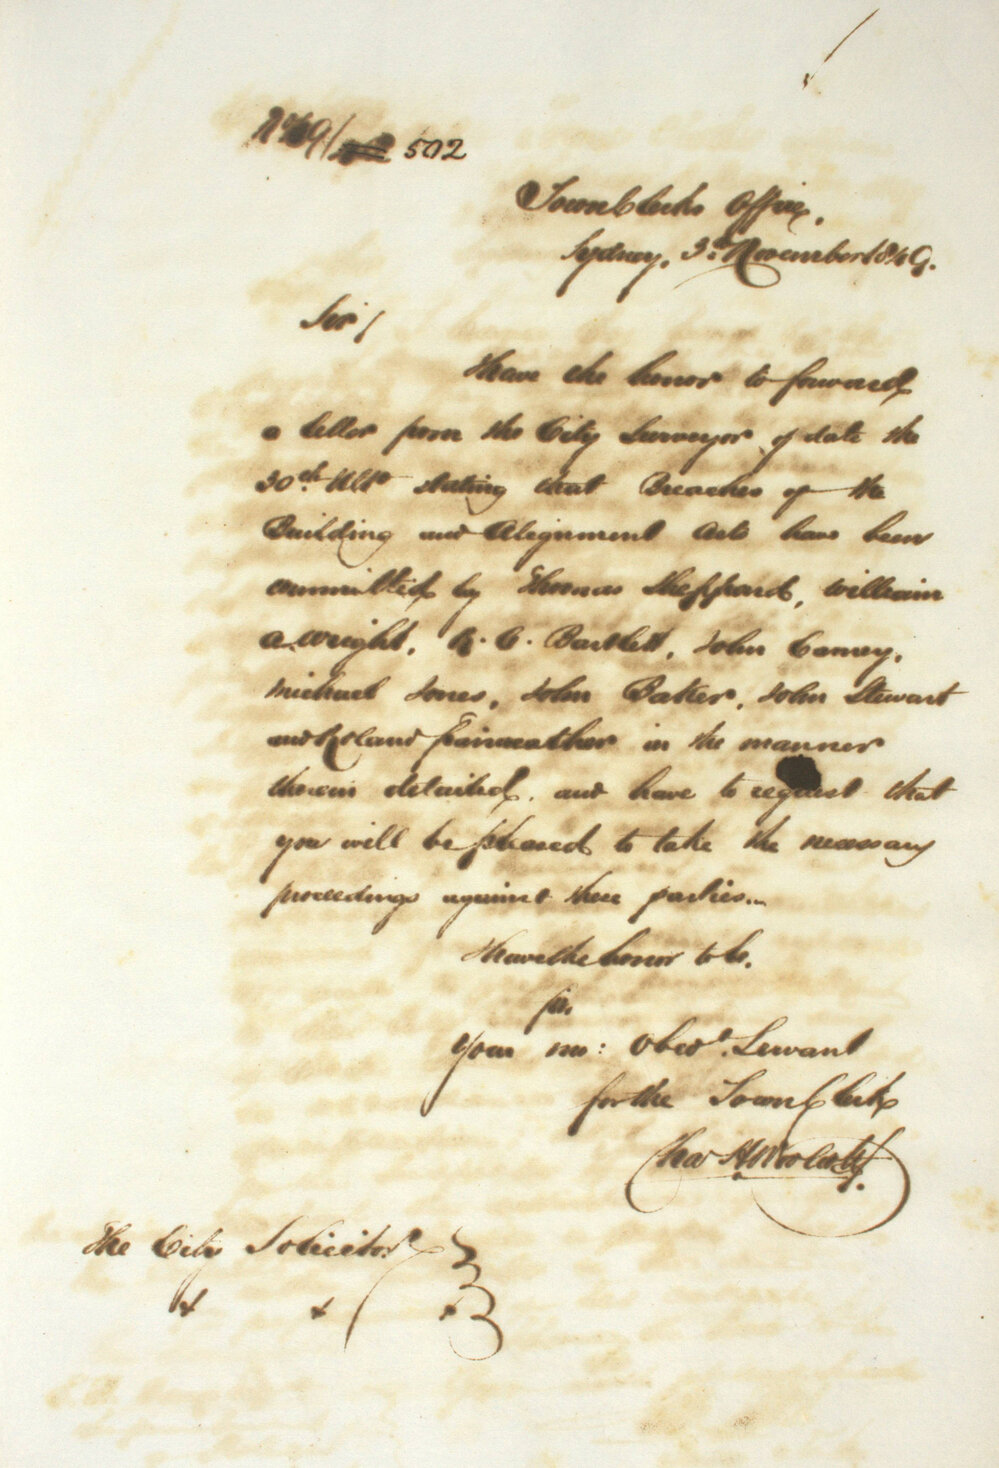 No 49/ 502
Town Clerks Office,
Sydney, 3rd November 1849.
Sir/
I have the honor to forward
a letter from the City Surveyor of date the
30th Ulto stating that Breaches of the
Building and Alignment Acts have been
committed by Thomas Sheppard, William
A. Wright, R. C. Bartlett, John Carney,
Michael Jones, John Baker, John Stewart
and Roland Fairweather in the manner
therein detailed, and have to request that
you will be pleased to take the necessary
proceedings against these parties...
I have the honor to be,
Sir,
Your mo: Obedt. Servant
for the Town Clerk
Chas H Woolcott.
The City Solicitor